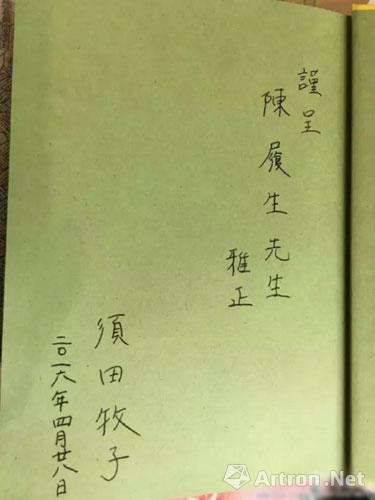 謹呈
陳履生先生
雅正
須田牧子
二〇一六年四月廿八日
Artron.Net